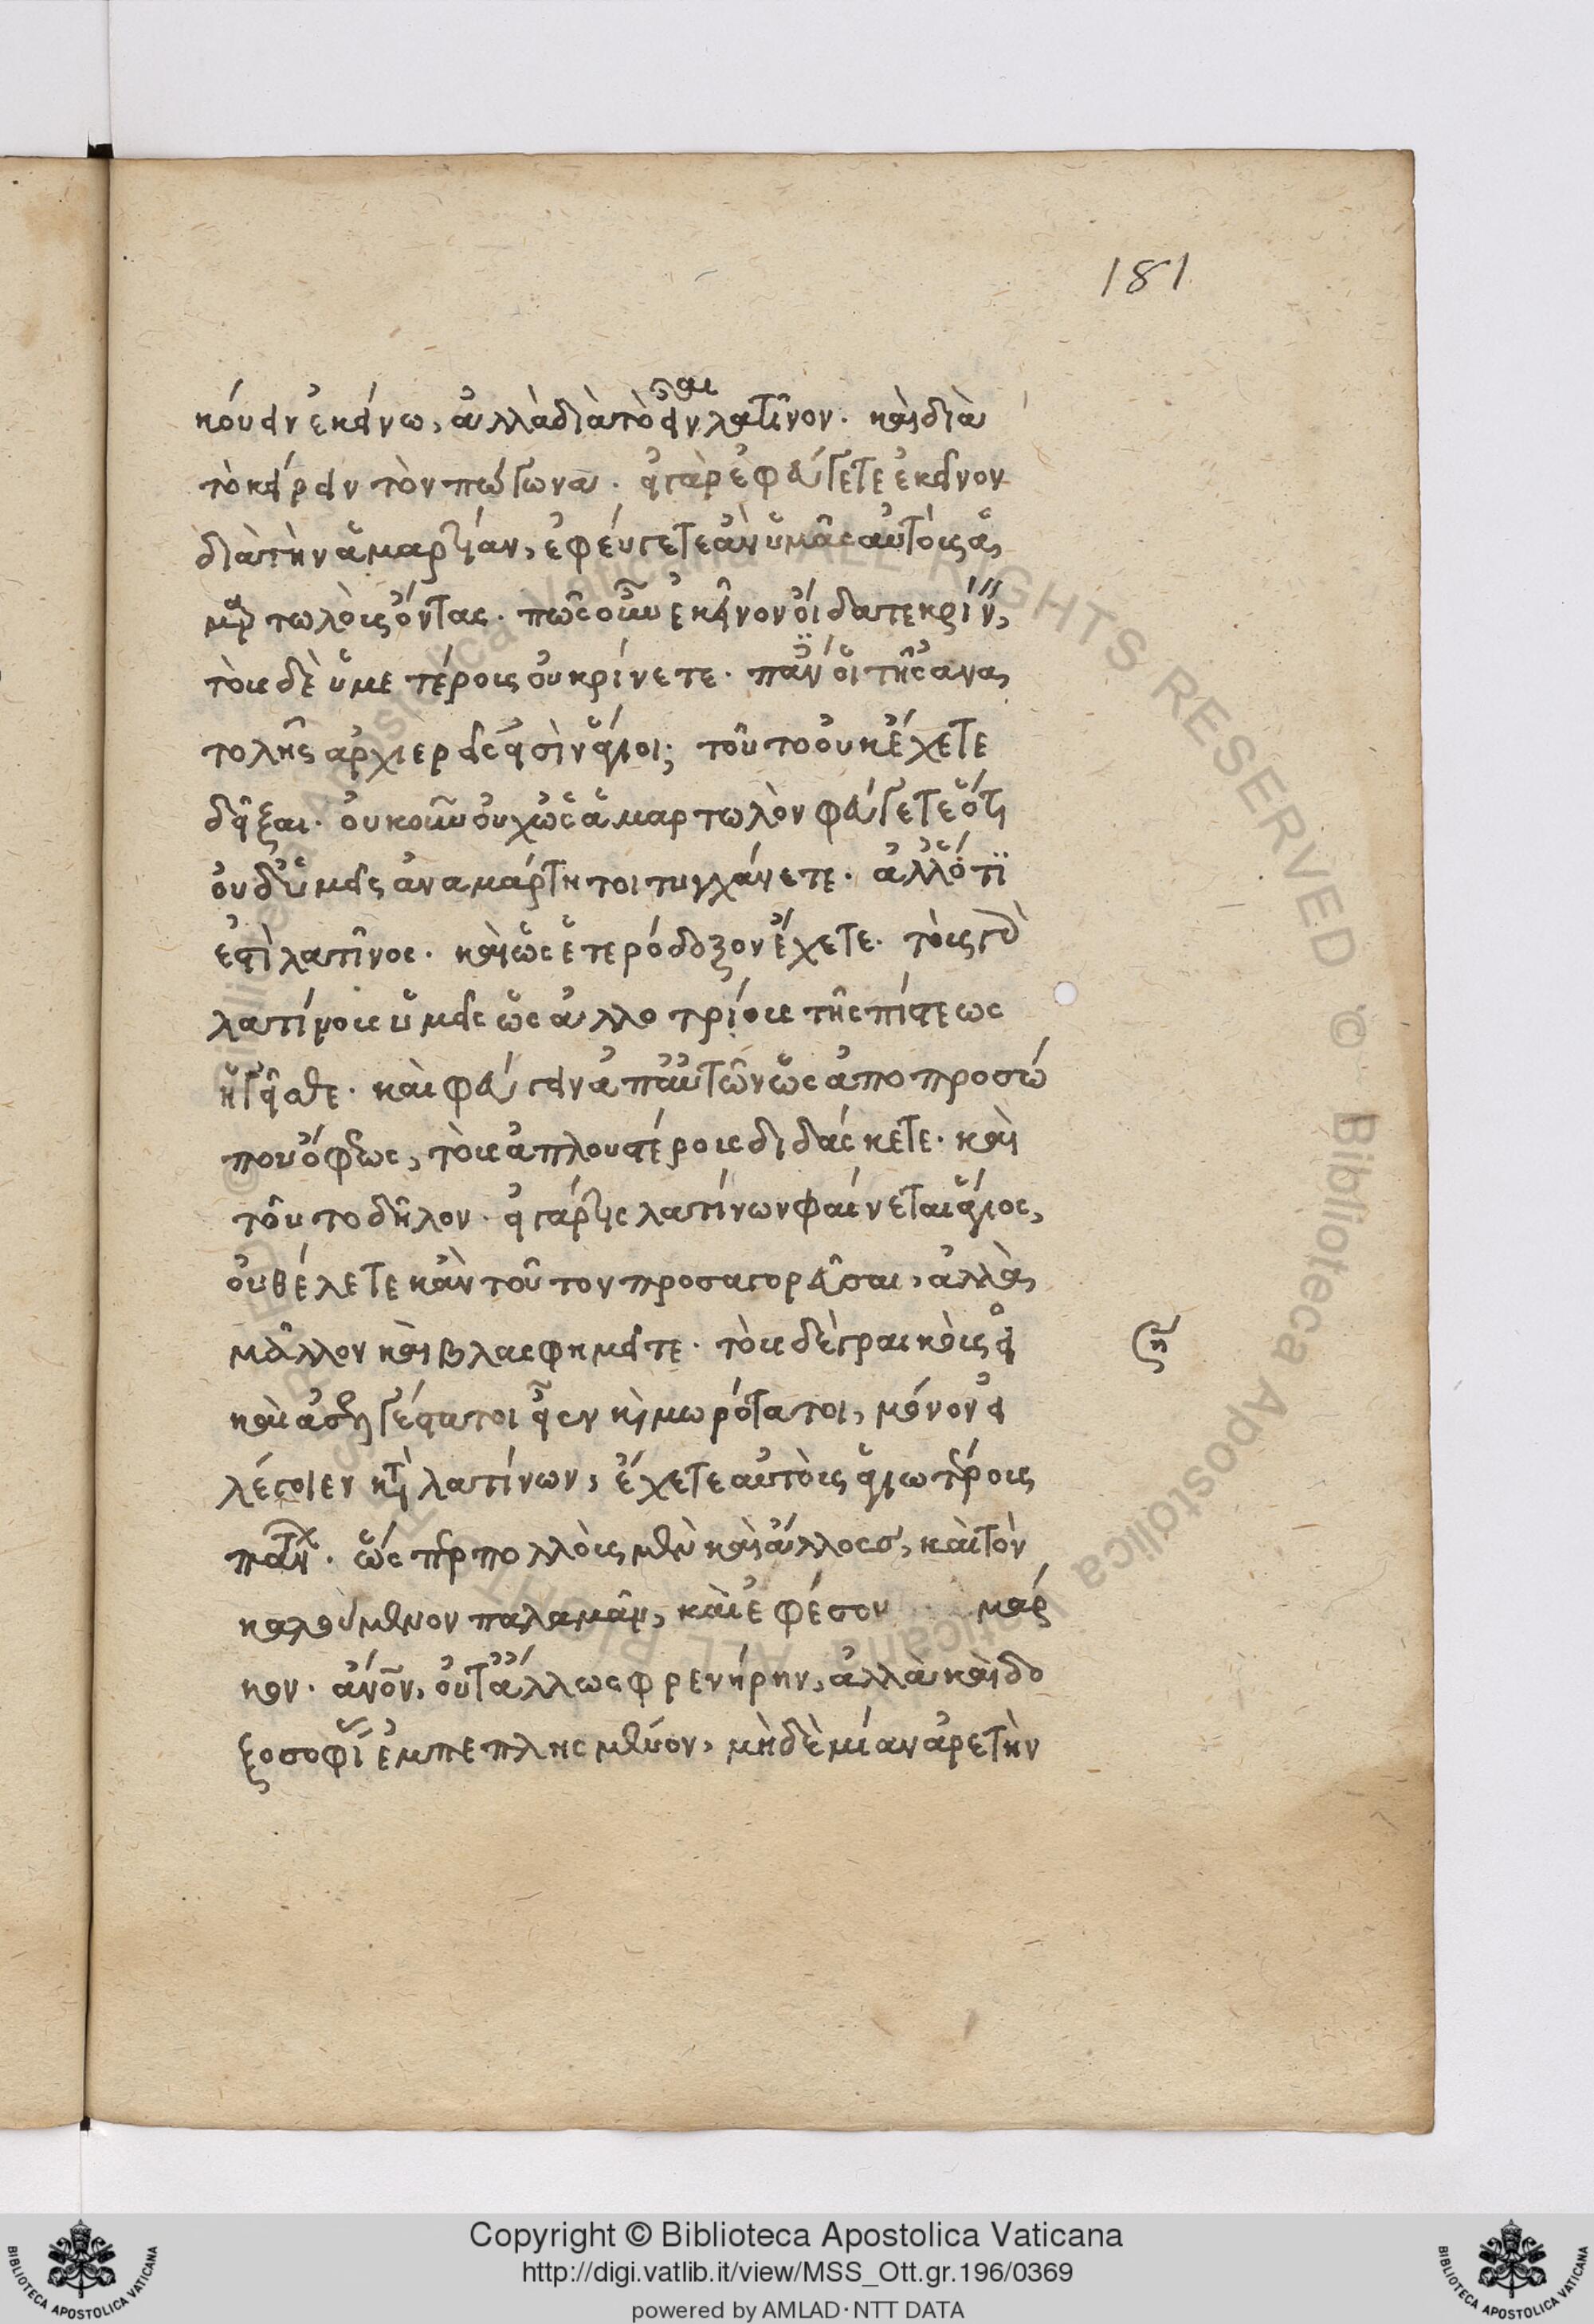 181
κούειν ἐκείνω, ἀλλὰ διὰ τὸ εἶναι λατῖνον. καὶ διὰ
τὸ κείρειν τὸν πώγωνα. εἰ γὰρ ἐφεύγετε ἐκεῖνον
διὰ τὴν ἁμαρτίαν, ἐφεύγετε ἂν ὑμᾶς αὐτοὺς ἁ
μαρτωλοὺς ὄντας. πῶς οὖν ἐκεῖνον οἴδατε κρίνειν,
τοὺς δὲ ὑμετέρους οὐ κρίνετε. πάντες οἱ τῆς ἀνα
τολῆς ἀρχιερεῖς εἰσὶν ἅγιοι; τοῦτο οὐκ ἔχετε
δεῖξαι. οὐκοῦν οὐχ ὡς ἁμαρτωλὸν φεύγετε ὅτι
οὐδ' ὑμεῖς ἀναμάρτητοι τυγχάνετε. ἀλλ' ὅτι
ἐστὶ λατῖνος. καὶ ὡς ἑτερόδοξον ἔχετε. τοὺς γὰρ
λατίνους ὑμεῖς ὡς ἀλλοτρίους τῆς πίστεως
ἡγεῖσθε. καὶ φεύγειν ἀπ' αὐτῶν ὡς ἀπὸ προσώ
που ὄφεως, τοὺς ἁπλουστέρους διδάσκετε. καὶ
τοῦτο δῆλον. εἰ γάρ τις λατίνων φαίνεται ἅγιος,
οὐ θέλετε κἂν τοῦτον προσαγορεῦσαι, ἀλλὰ
μᾶλλον καὶ βλασφημεῖτε. τοὺς δὲ γραικοὺς εἰ
καὶ ἀσελγέστατοι εἶεν καὶ μωρότατοι, μόνον εἰ
λέγοιεν κατὰ λατίνων, ἔχετε αὐτοὺς ἁγιωτέρους
πάντων. ὥσπερ πολλοὺς μὲν καὶ ἄλλους, καὶ τὸν
καλούμενον παλαμᾶν, καὶ ἐφέσου μάρ
κον. ἄνθρωπον, οὔτ' ἄλλως φρενήρην, ἀλλὰ καὶ δο
ξοσοφίας ἐμπεπλησμένον, μηδὲ μίαν ἀρετὴν
Copyright © Biblioteca Apostolica Vaticana
http://digi.vatlib.it/view/MSS_Ott.gr.196/0369
powered by AMLAD·NTT DATA